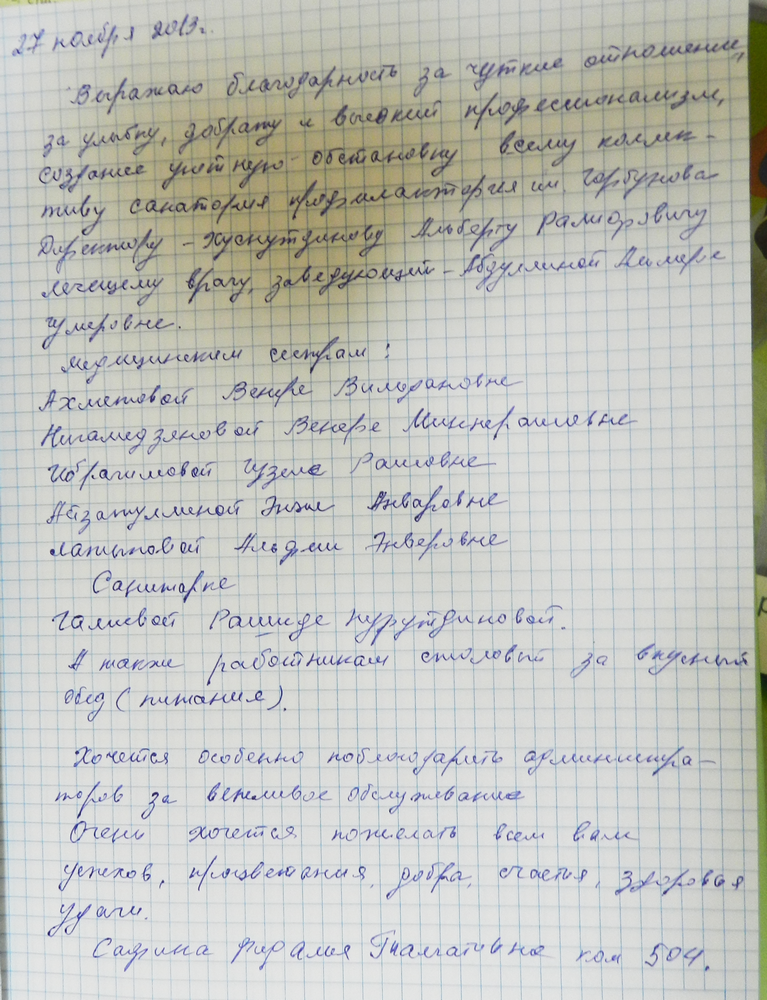 27 ноября 2013г.
Выражаю благодарность за чуткие отношение,
за улыбку, доброту и высокий профессионализм,
создание уютную обстановку всему коллек-
тиву санатория профилактория им. Горбунова
Директору - Хуснутдинову Альберту Рашидовичу
лечещему врачу, заведующий - Абдуллиной
Гумеровне.
Медицинским сестрам:
Ахметовой Венере Вилдановне
Нигамедзяновой Венере Миннерашовне
Ибрагимовой Гузели Раисовне
Айзатуллиной Энже Анваровне
Латыповой Альфии Энверовне
Санитарке
Галиевой Рашиде Нурутдиновой.
А также работникам столовый за вкусный
обед (питания).
Хочется особенно поблагодарить администра-
торов за вежливое обслуживание
Очень хочется пожелать всем вам
успехов, процветания, добра, счастья, здоровья
удачи.
Сафина Фидалия Гналгатовна ком 504.